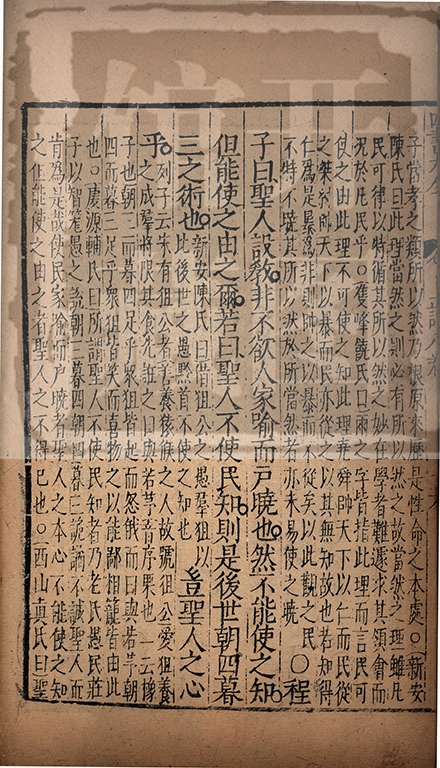 子當孝之類所以然乃根原來歷是性命之本處○新安
陳氏曰此理當然之則必有所以然之故當然之理雖凡
民可律以持循其所以然之妙在學者難遽求其領會而
況於凡民乎○雙峰饒氏曰兩之字皆指此理而言民可
使之由此理不可使之知此理堯舜帥天下以仁而民從
之桀紂帥天下以暴而民亦從之以其無知故也若知得
仁為是暴為非則帥之以暴而不從矣以此觀之民
不特不曉其所以然於所當然者亦未易使之曉
○程
子曰聖人設教非不欲人家喻而戶曉也然不能使之知
但能使之由之爾若曰聖人不使民知則是後世朝四暮
三之術也
新安陳氏曰借狙公之愚羣狙以
比後世之愚黔首不使之知也
豈聖人之心
乎
列子云宋有狙公者善養猨猴之人故號狙公愛狙養
之成羣將限其食先誑之曰與若芧音序栗也一云橡
子也朝三而暮四足乎衆狙皆起而怒俄而曰與若芧朝
四而暮三足乎衆狙皆笑而喜物之以能鄙相籠皆由此
也○慶源輔氏曰所謂聖人不使民知者乃老氏愚民莊
子以智籠愚之說朝三暮四朝四暮三詭譎不誠聖人而
肯為是哉使民家喻而戶曉者聖人之本心不能使之知
之但能使之由之者聖人之不得已也○西山真氏曰聖